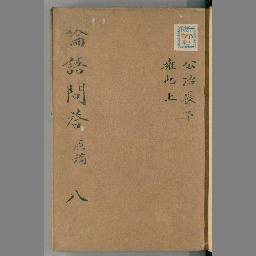 公冶長下
雍也上
論語問答
原稿
八